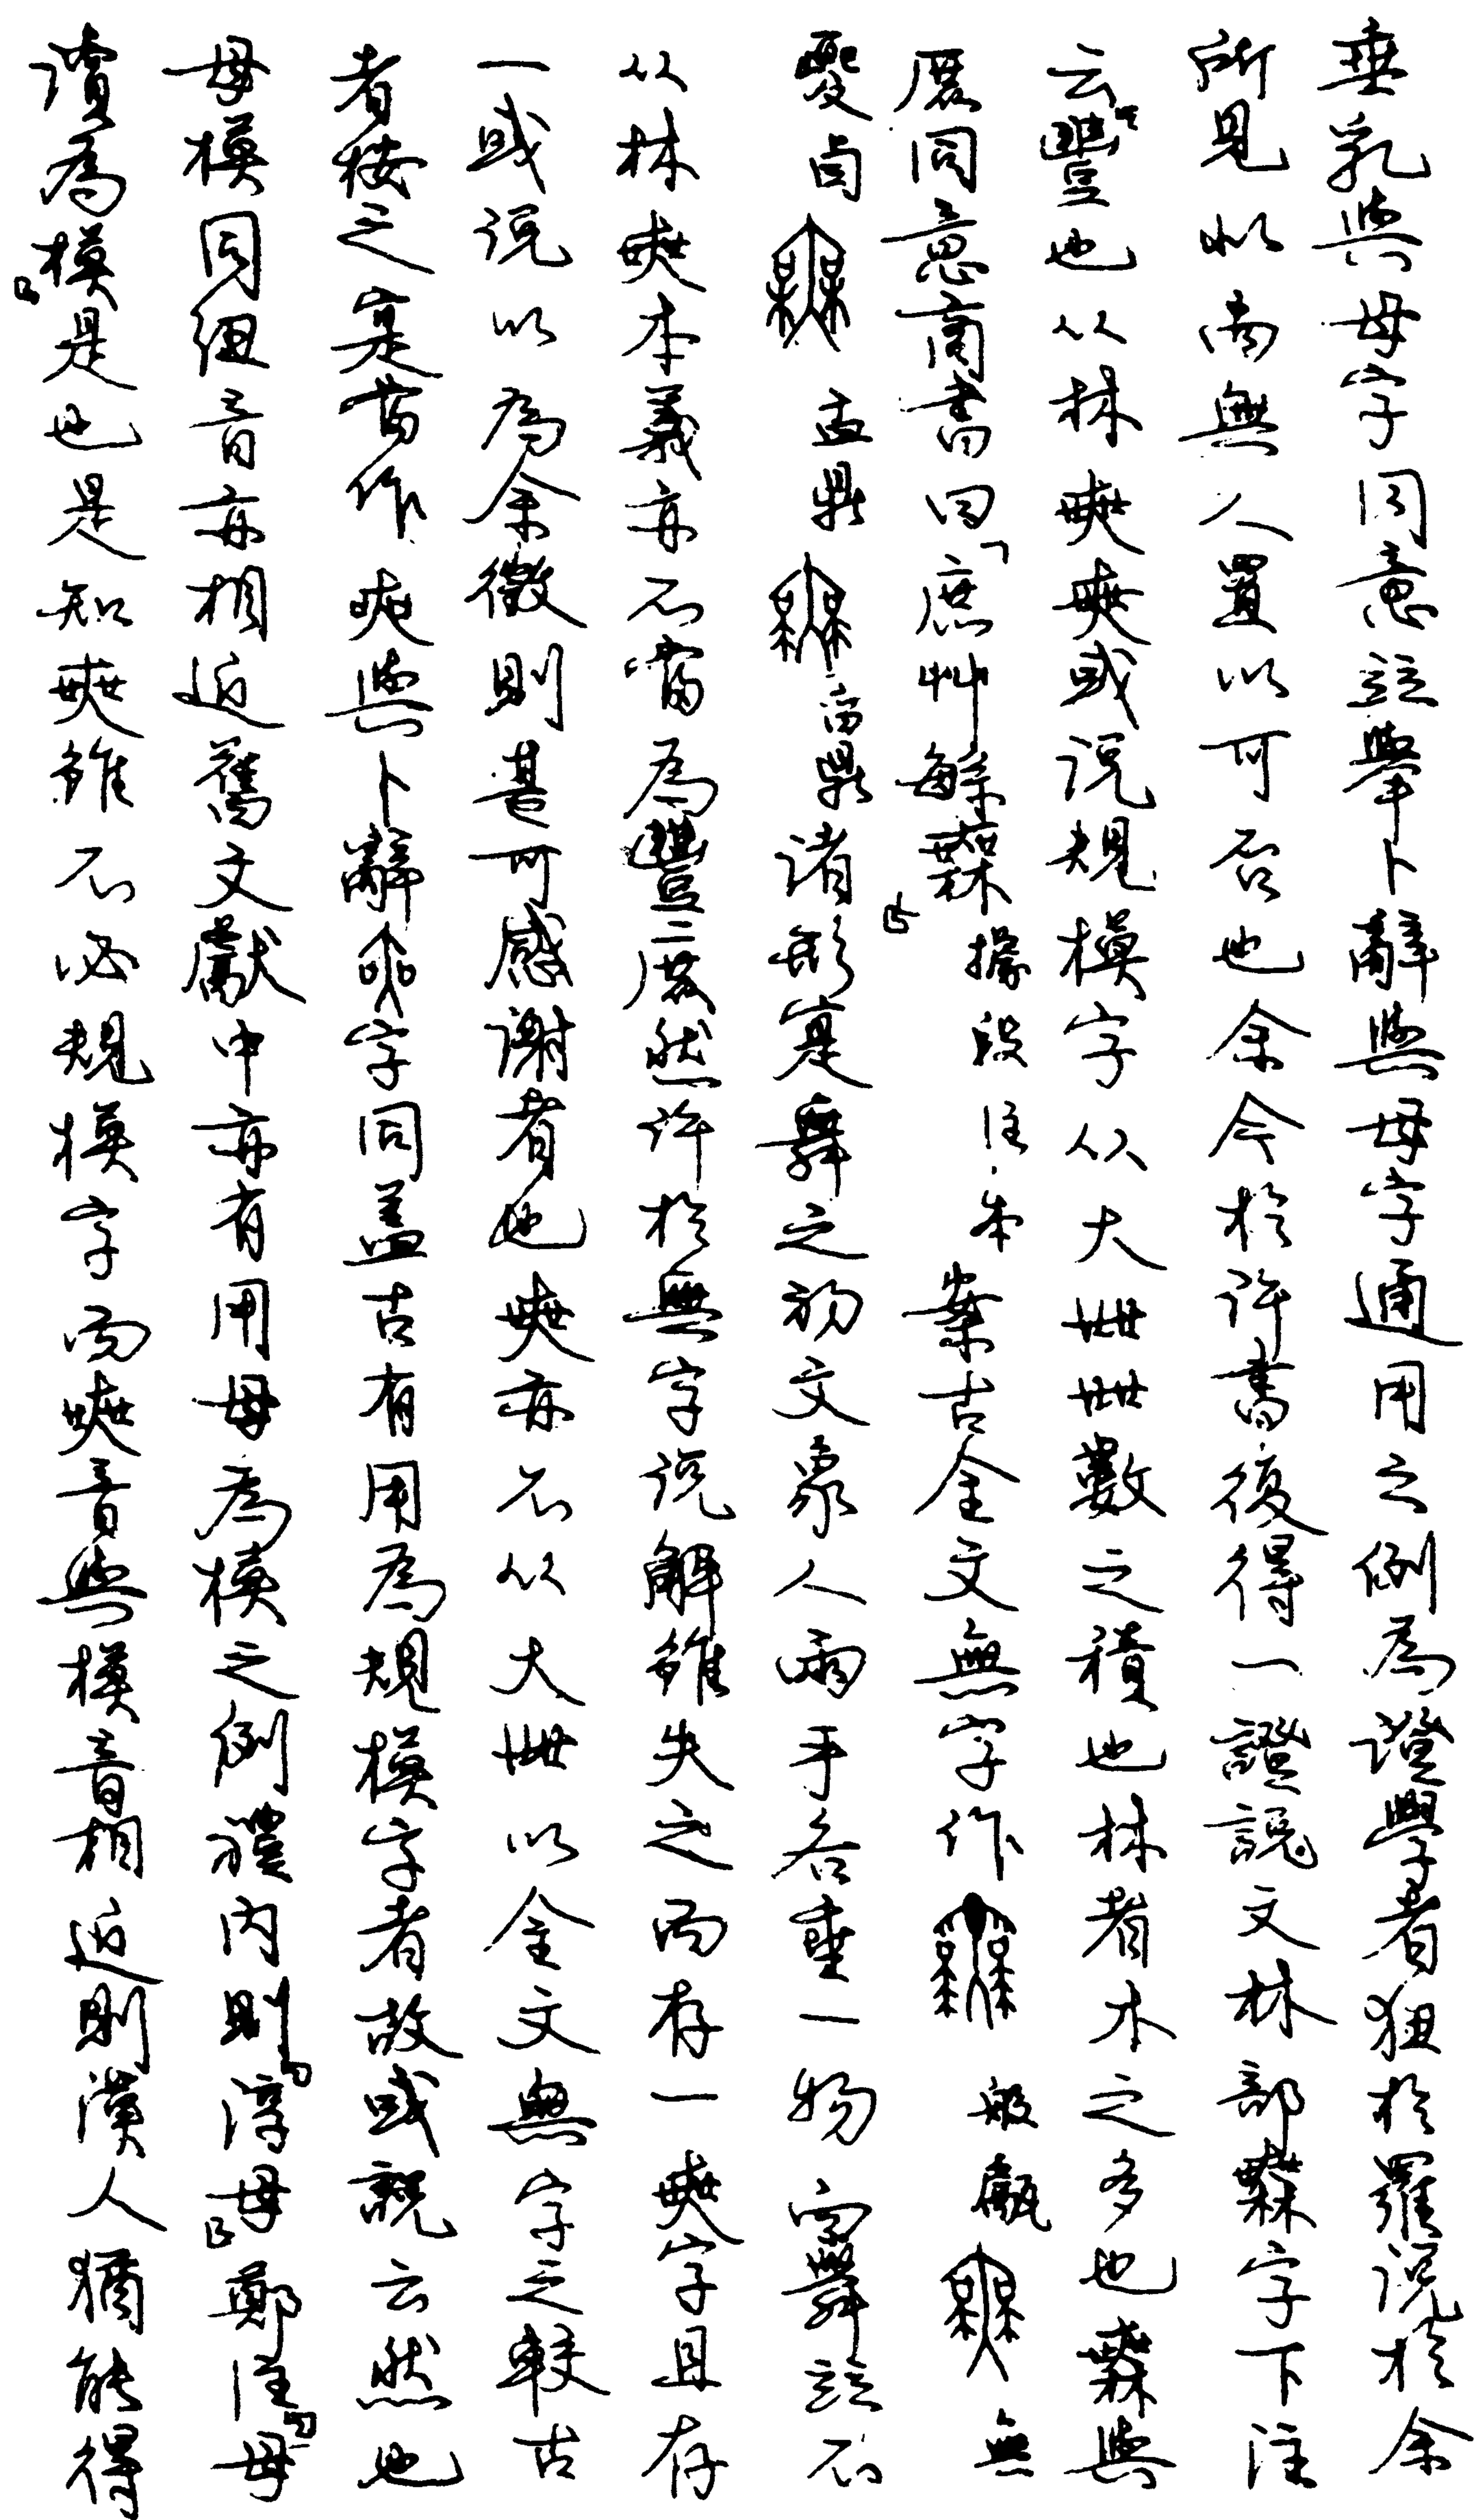 垂乳與母字同意並舉卜辭與母字通用之例為證學者狃於羅說於余
所見似尚無人置以可否也余今於許書復得一證說文林部𣞤字下注
云「豐也从林𡘲𡘲或說規模字从大𠦜𠦜數之積也林者木之多也𣞤與
庶同意商書曰「庶艸繁𣞤」據段注本案古金文無字作般甗無
㚆卣盂鼎鼎諸形寔舞之初文象人兩手各垂一物而舞並不
从林𡘲本義亦不當為豐為庶然許於無字說解雖失之而存一𡘲字且存
一或說以為余徵則甚可感謝者也𡘲亦不从大𠦜以金文無字之較古
者按之寔當作𡘲與卜辭字同蓋古有用為規模字者故或說云然也
母模同紐音亦相近舊文獻中亦有用母為模之例禮內則「淳母」鄭注「母
讀為模」是也是知𡘲雖不必規模字而𡘲音與模音相近則漢人猶能得